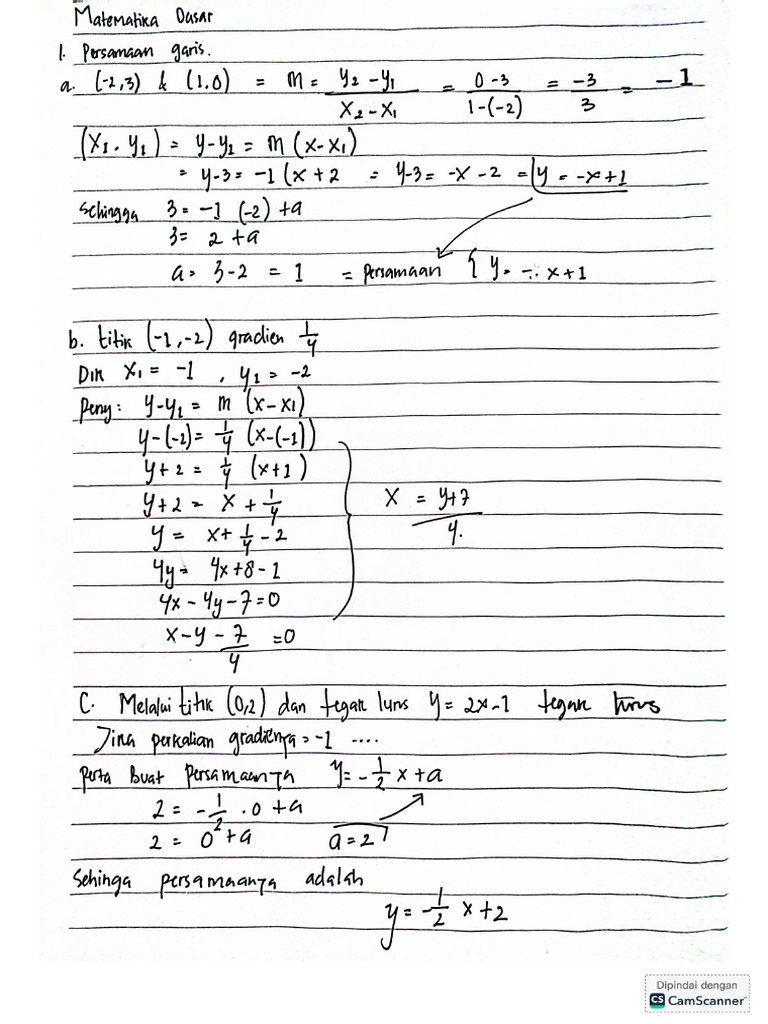 Matematika Dasar
1. Persamaan garis.
a. (-2,3) & (1.0) = m = y2 - y1 / x2 - x1 = 0-3 / 1-(-2) = -3 / 3 = -1
(x1. y1) = y-y1 = m (x-x1)
= y-3 = -1 (x+2 = y-3 = -x-2 = y = -x+1
Sehingga 3 = -1 (-2) + a
3 = 2 + a
a = 3-2 = 1 = Persamaan { y = -x+1
b. titik (-1,-2) gradien 1/4
Dik x1 = -1 , y1 = -2
Peny: y-y1 = m (x-x1)
y-(-2) = 1/4 (x-(-1))
y+2 = 1/4 (x+1)
y+2 = x + 1/4
y = x + 1/4 - 2
4y = 4x+8-1
4x-4y-7=0
x-y-7/4 =0
x = y+7 / 4.
C. Melalui titik (0,2) dan tegak lurus y = 2x-1 tegak lurus
Jika perkalian gradienya = -1 ....
Perta Buat Persamaannya y = -1/2 x + a
2 = -1/2 . 0 + a
2 = 0 + a a = 2
Sehinga persamaanya adalah
y = -1/2 x + 2
Dipindai dengan
CS CamScanner